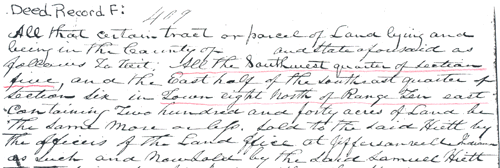 Deed Record F:
409
All that certain tract or parcel of Land lying and
being in the County of and state aforesaid as
follows To wit: All the Southwest quarter of section
five, and the East half of the southeast quarter of
section six in Town eight North of Range Ten east
containing Two hundred and forty acres of Land be
the same more or less. Sold to the said Hieth by
the officers of the Land office at Jeffersonville
and now sold by the said Samuel Hieth